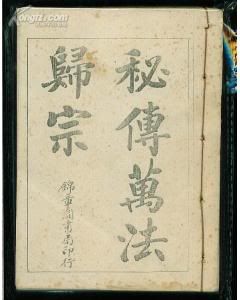 秘傳萬法
歸宗
錦章圖書局印行